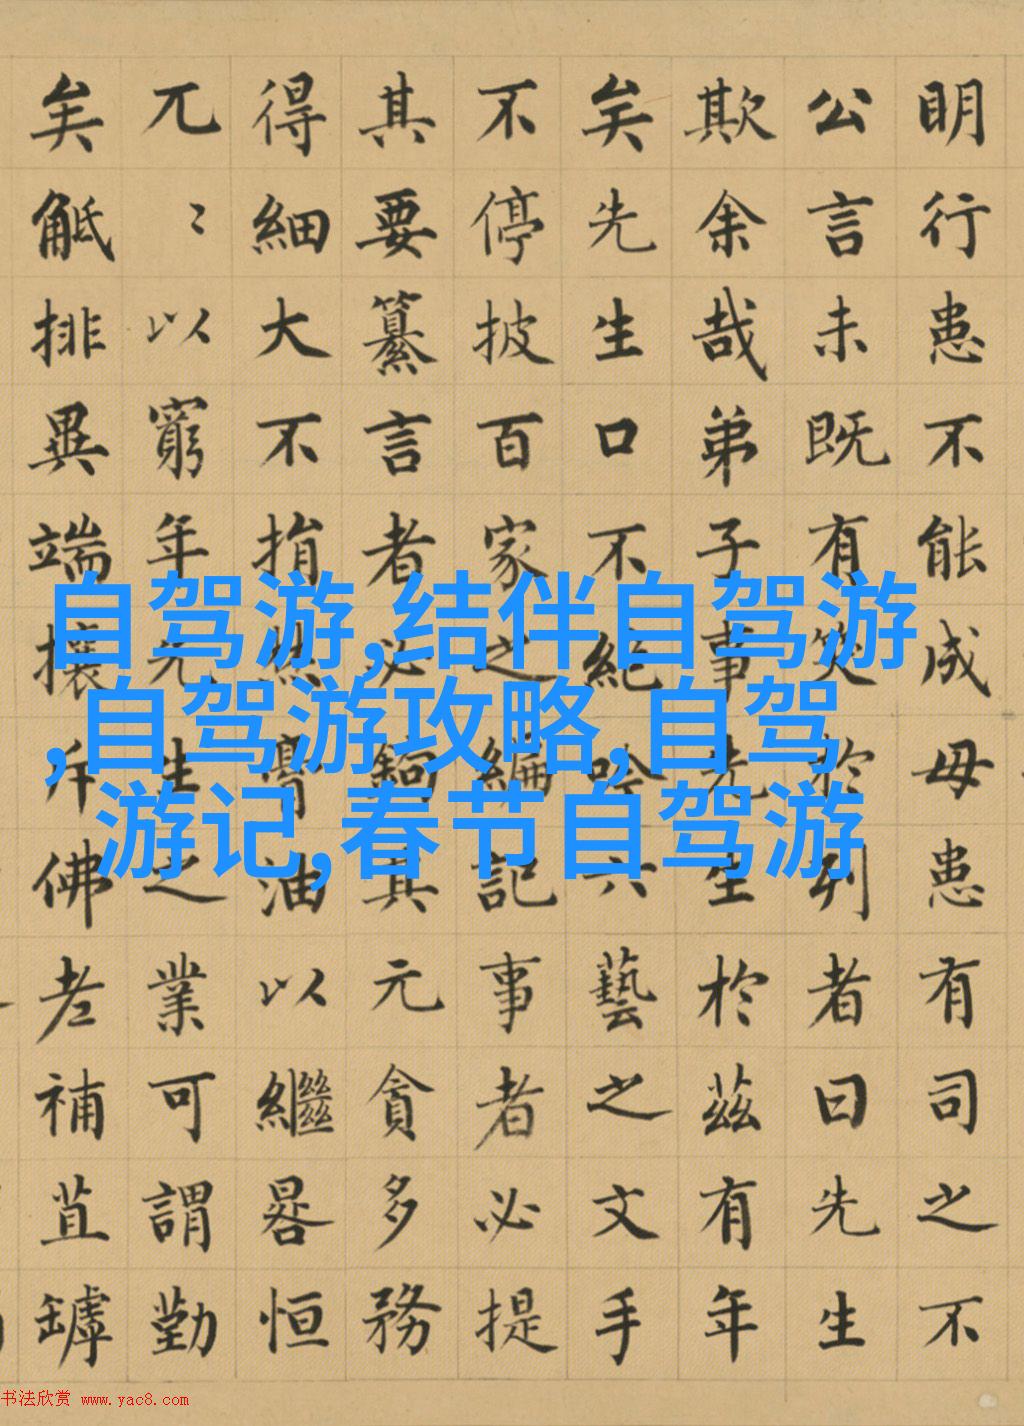 明行患不能成毋患有司之不
公言未既有笑於列者曰先生
欺余哉弟子事先生於茲有年
矣先生口不絶吟六藝之文手
不停披百家之編記事者必提
其要纂言者必鉤其元貪多務
得細大不捐焚膏油以繼晷恒
兀〻以窮年先生之業可謂勤
矣觝排異端攘斥佛老補苴罅
自驾游,结伴自驾游
,自驾游攻略,自驾
游记,春节自驾游
书法欣赏 www.yac8.com